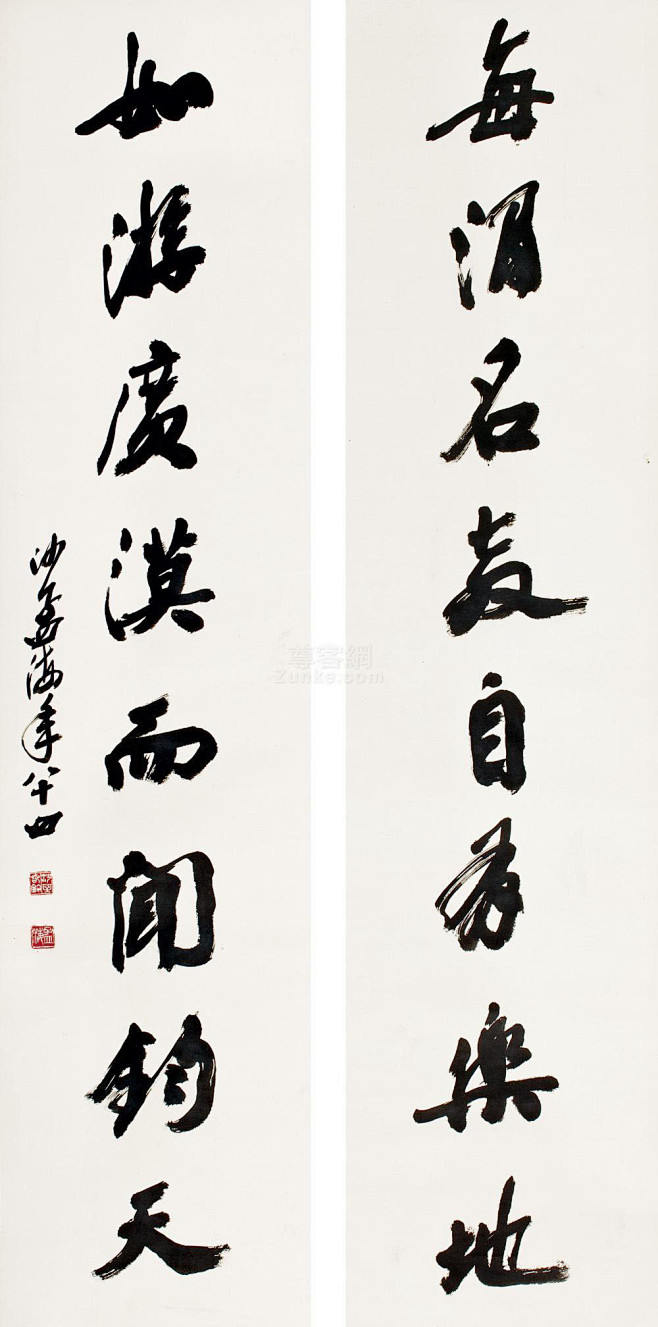 每謂名教自有樂地
如游廣漠而聞鈞天
沙孟海年八十四
尊客網
Zunke.com